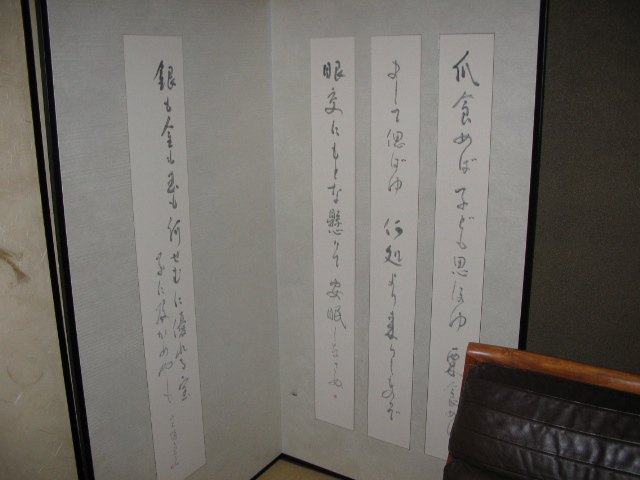 瓜食めば 子ども思ほゆ 栗食め
まして偲ばゆ 何処より来りしものぞ
眼交にもとな懸りて 安眠しなさぬ
銀も金も玉も何せむに優れる宝
子に及かめやも